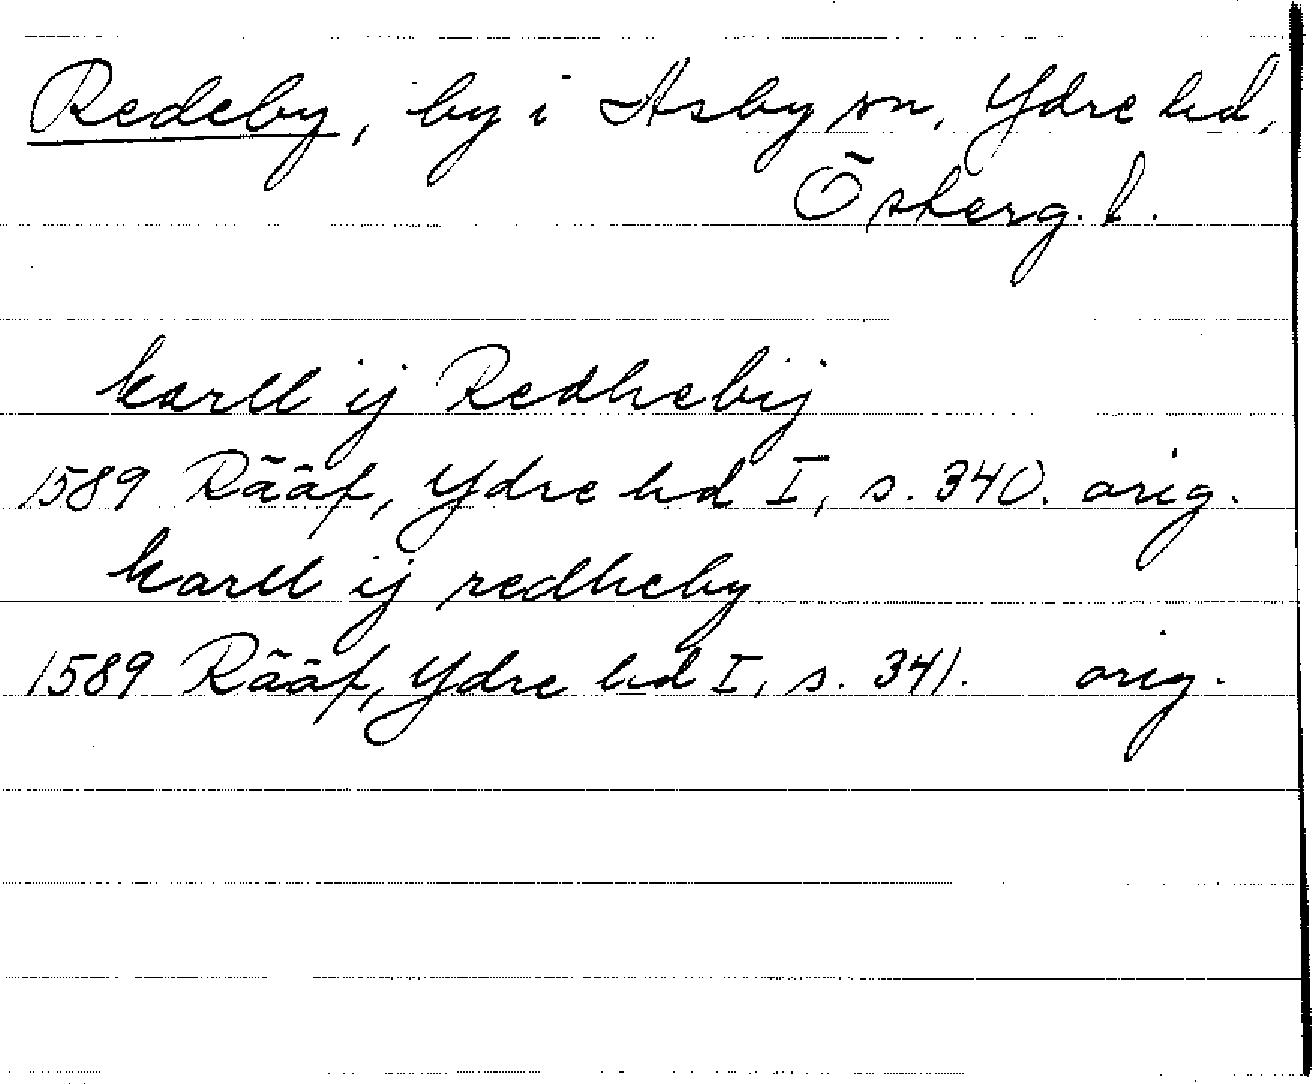 Redeby, by i Asby sn, Ydre hd,
Österg. l.
karll ij Redhebij
1589 Rääf, Ydre hd I, s. 340. orig.
karll ij redheby
1589 Rääf, Ydre hd I, s. 341. orig.